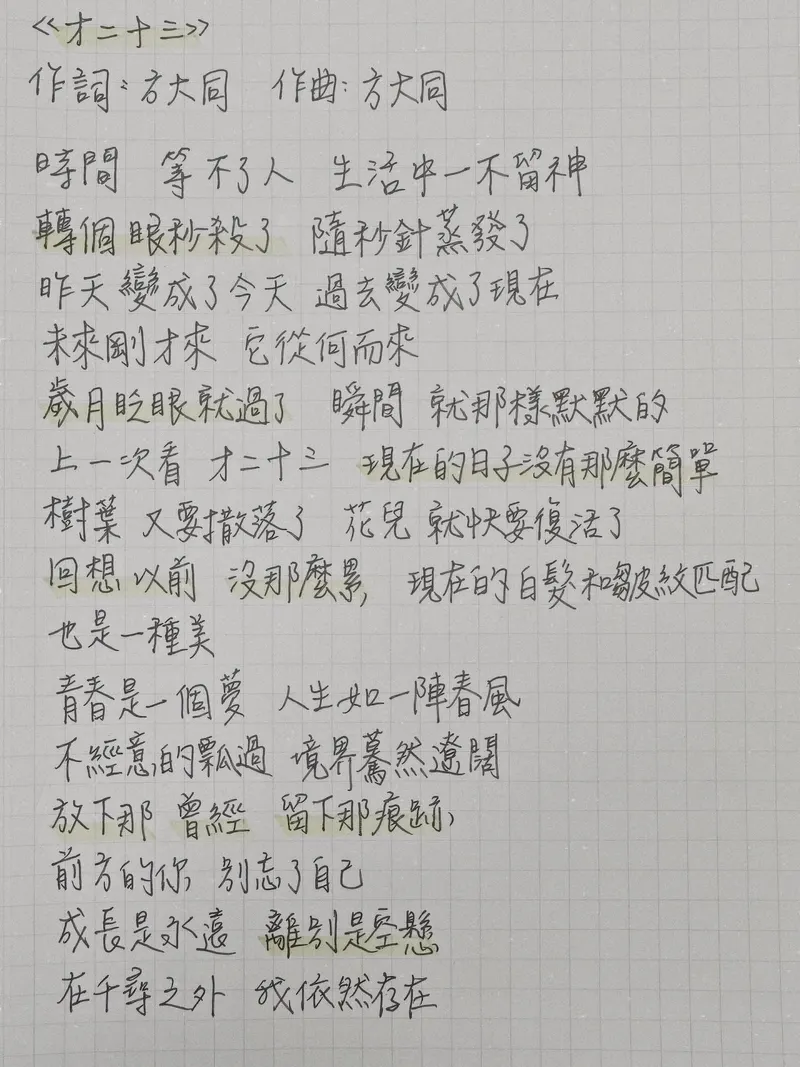 《才二十三》
作詞：方大同 作曲：方大同
時間 等不了人 生活中一不留神
轉個眼秒殺了 隨秒針蒸發了
昨天變成了今天 過去變成了現在
未來剛才來 它從何而來
歲月眨眼就過了 瞬間 就那樣默默的
上一次看 才二十三 現在的日子沒有那麼簡單
樹葉 又要撒落了 花兒 就快要復活了
回想以前 沒那麼累, 現在的白髮和皺紋匹配
也是一種美
青春是一個夢 人生如一陣春風
不經意的瓢過 境界驀然遼闊
放下那 曾經 留下那痕跡
前方的你 別忘了自己
成長是永遠 離別是空懸
在千尋之外 我依然存在